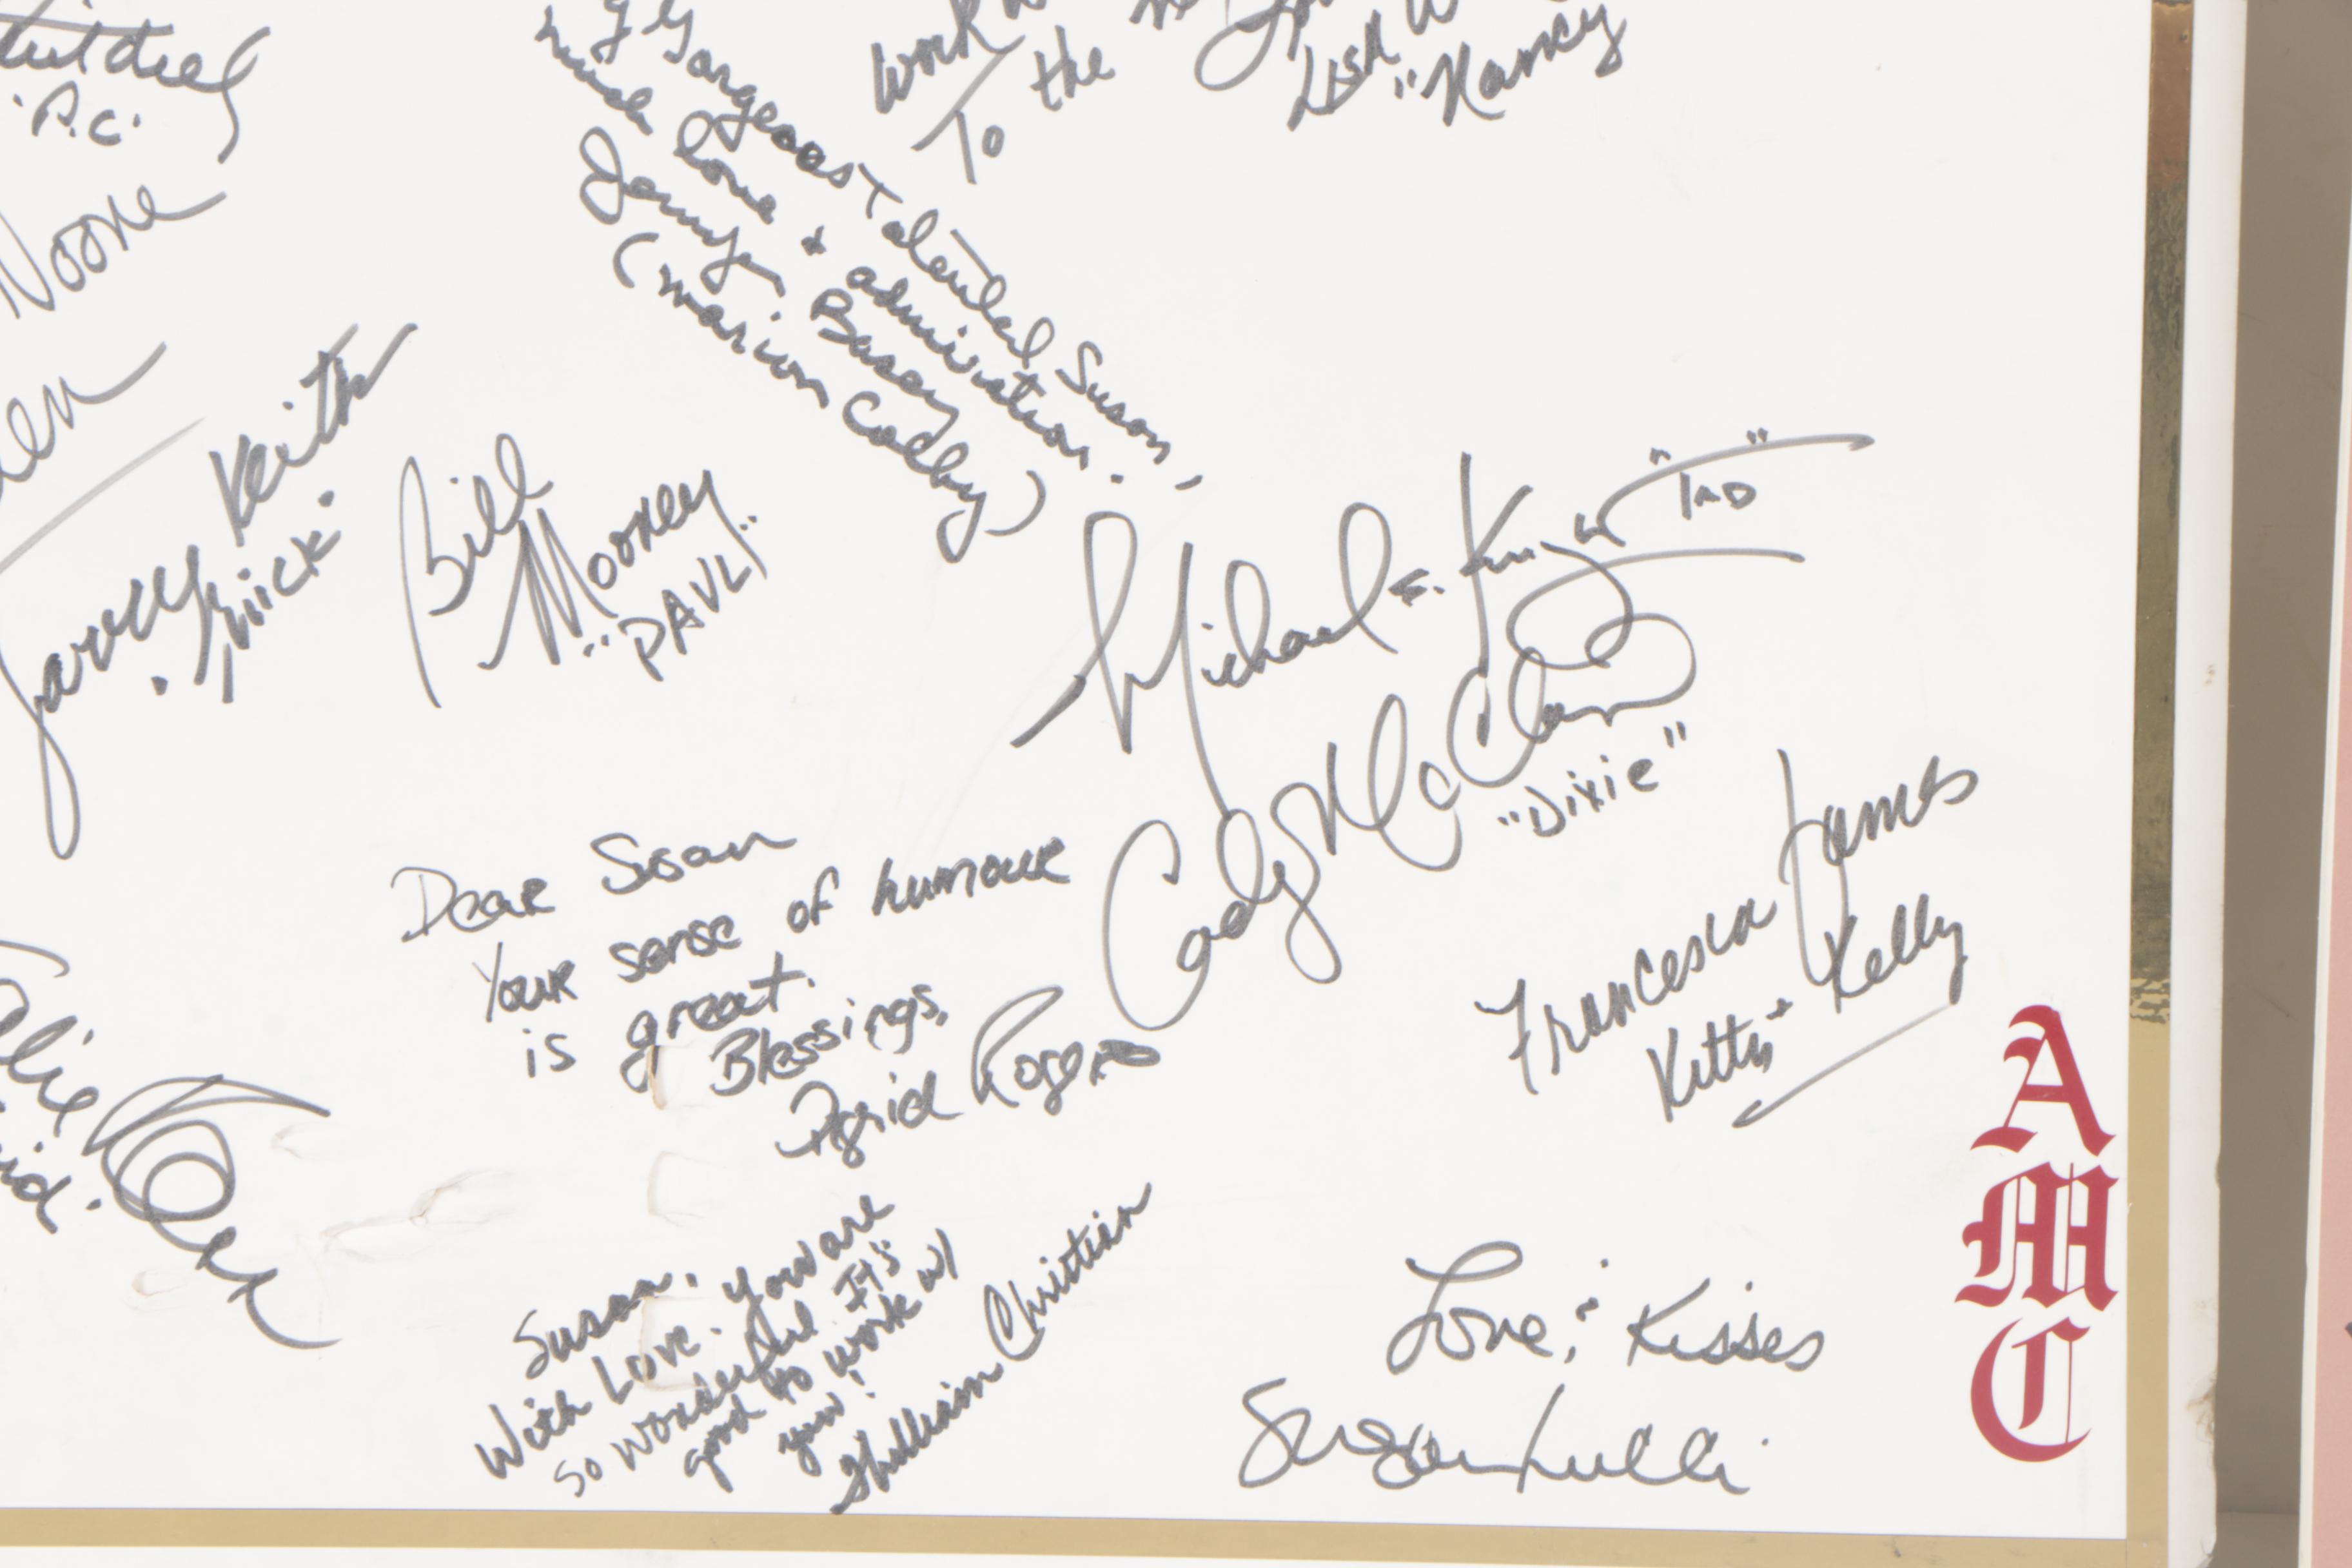 P.C.
Noone
Larry Keith
"Nick"
Bill
Mooney
"PAUL"
Gorgeous Talented Susan,
love + admiration.
Jennifer Bassey
(Marion Colby)
Work
To the
Lisa
"Nancy
Michael E. Knight "TAD"
Cady McClain
"Dixie"
Dear Susan
Your sense of humour
is great.
Blessings,
Ingrid Rogers
Francesca James
Kitty + Kelly
Susan,
With Love. You are
so wonderful. It's
good to work w/
you!
Shillian Christian
Love, & Kisses
Susan Lucci
AMC